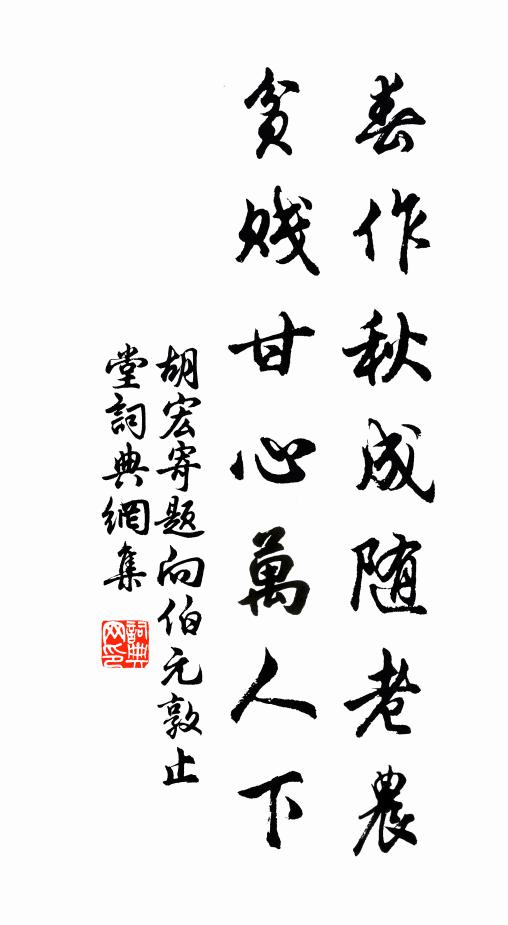 春作秋成随老農
貧賤甘心萬人下
胡宏寄題向伯元敦止
堂詞典網集
詞典
网印